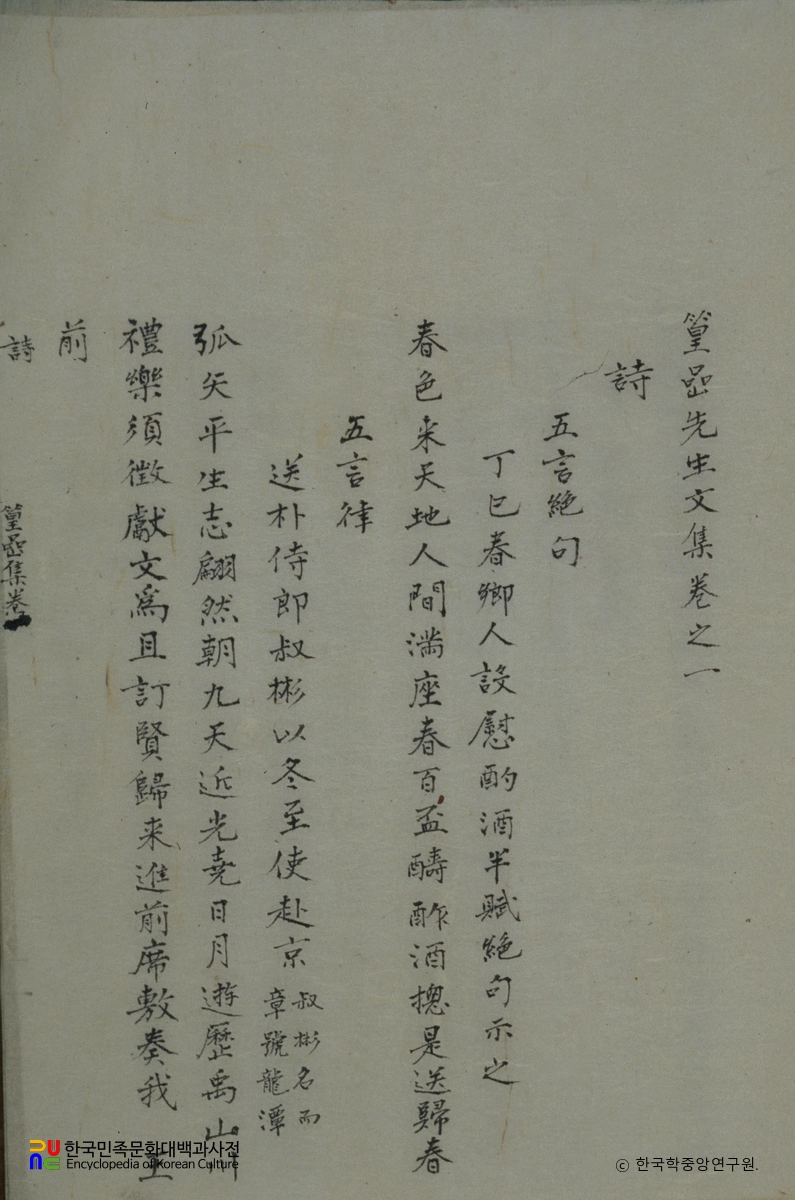 篁嵒先生文集卷之一
詩
五言絶句
丁巳春鄉人設慰酌酒半賦絶句示之
春色来天地人間滿座春百盃醻酢酒摠是送歸春
五言律
送朴侍郎叔彬以冬至使赴京
叔彬名而
章號龍潭
弧矢平生志翩然朝九天近光堯日月遊歷禹山川
禮樂須徵獻文爲且訂賢歸来進前席敷奏我王
前
詩
篁嵒集卷
한국민족문화대백과사전
Encyclopedia of Korean Culture
© 한국학중앙연구원.